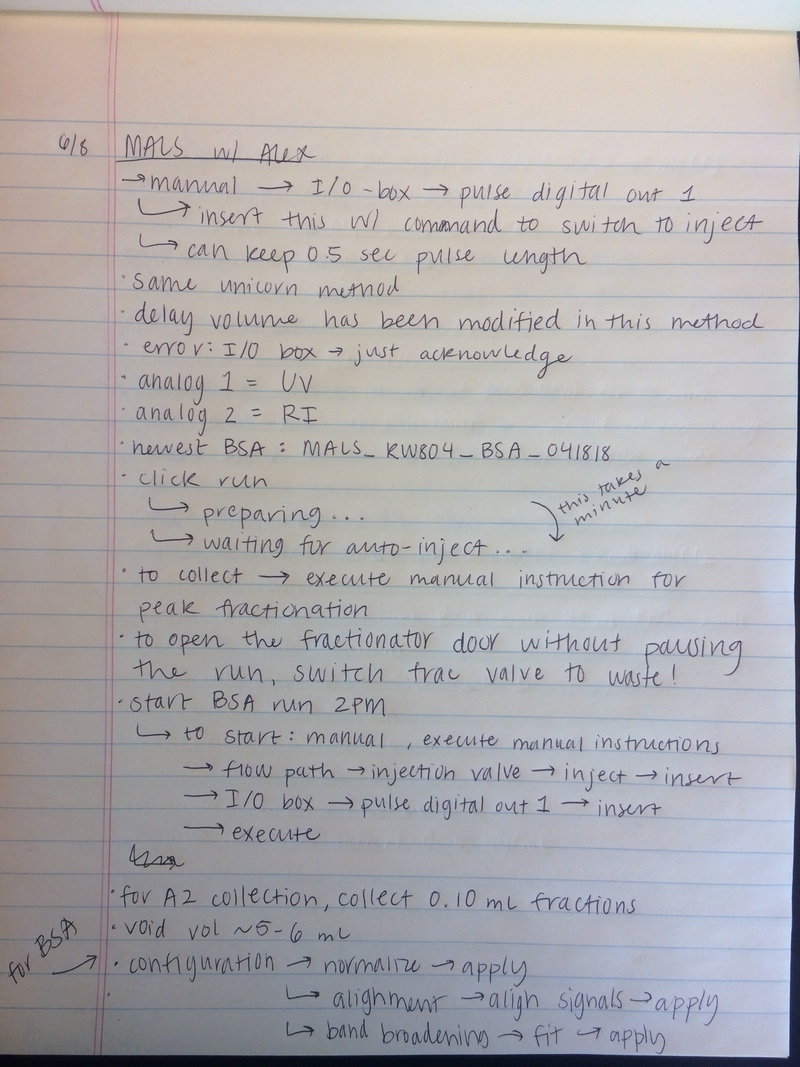 6/8 MALS w/ Alex
→ manual → I/O-box → pulse digital out 1
↳ insert this w/ command to switch to inject
↳ can keep 0.5 sec pulse length
· same unicorn method
· delay volume has been modified in this method
· error: I/O box → just acknowledge
· analog 1 = UV
· analog 2 = RI
· newest BSA : MALS_KW804_BSA_041818
· click run
↳ preparing...
this takes a
minute
↳ waiting for auto-inject...
· to collect → execute manual instruction for
peak fractionation
· to open the fractionator door without pausing
the run, switch frac valve to waste!
· start BSA run 2PM
↳ to start: manual, execute manual instructions
→ flow path → injection valve → inject → insert
→ I/O box → pulse digital out 1 → insert
→ execute
· for A2 collection, collect 0.10 mL fractions
· void vol ~5-6 mL
for BSA
· configuration → normalize → apply
↳ alignment → align signals → apply
↳ band broadening → fit → apply